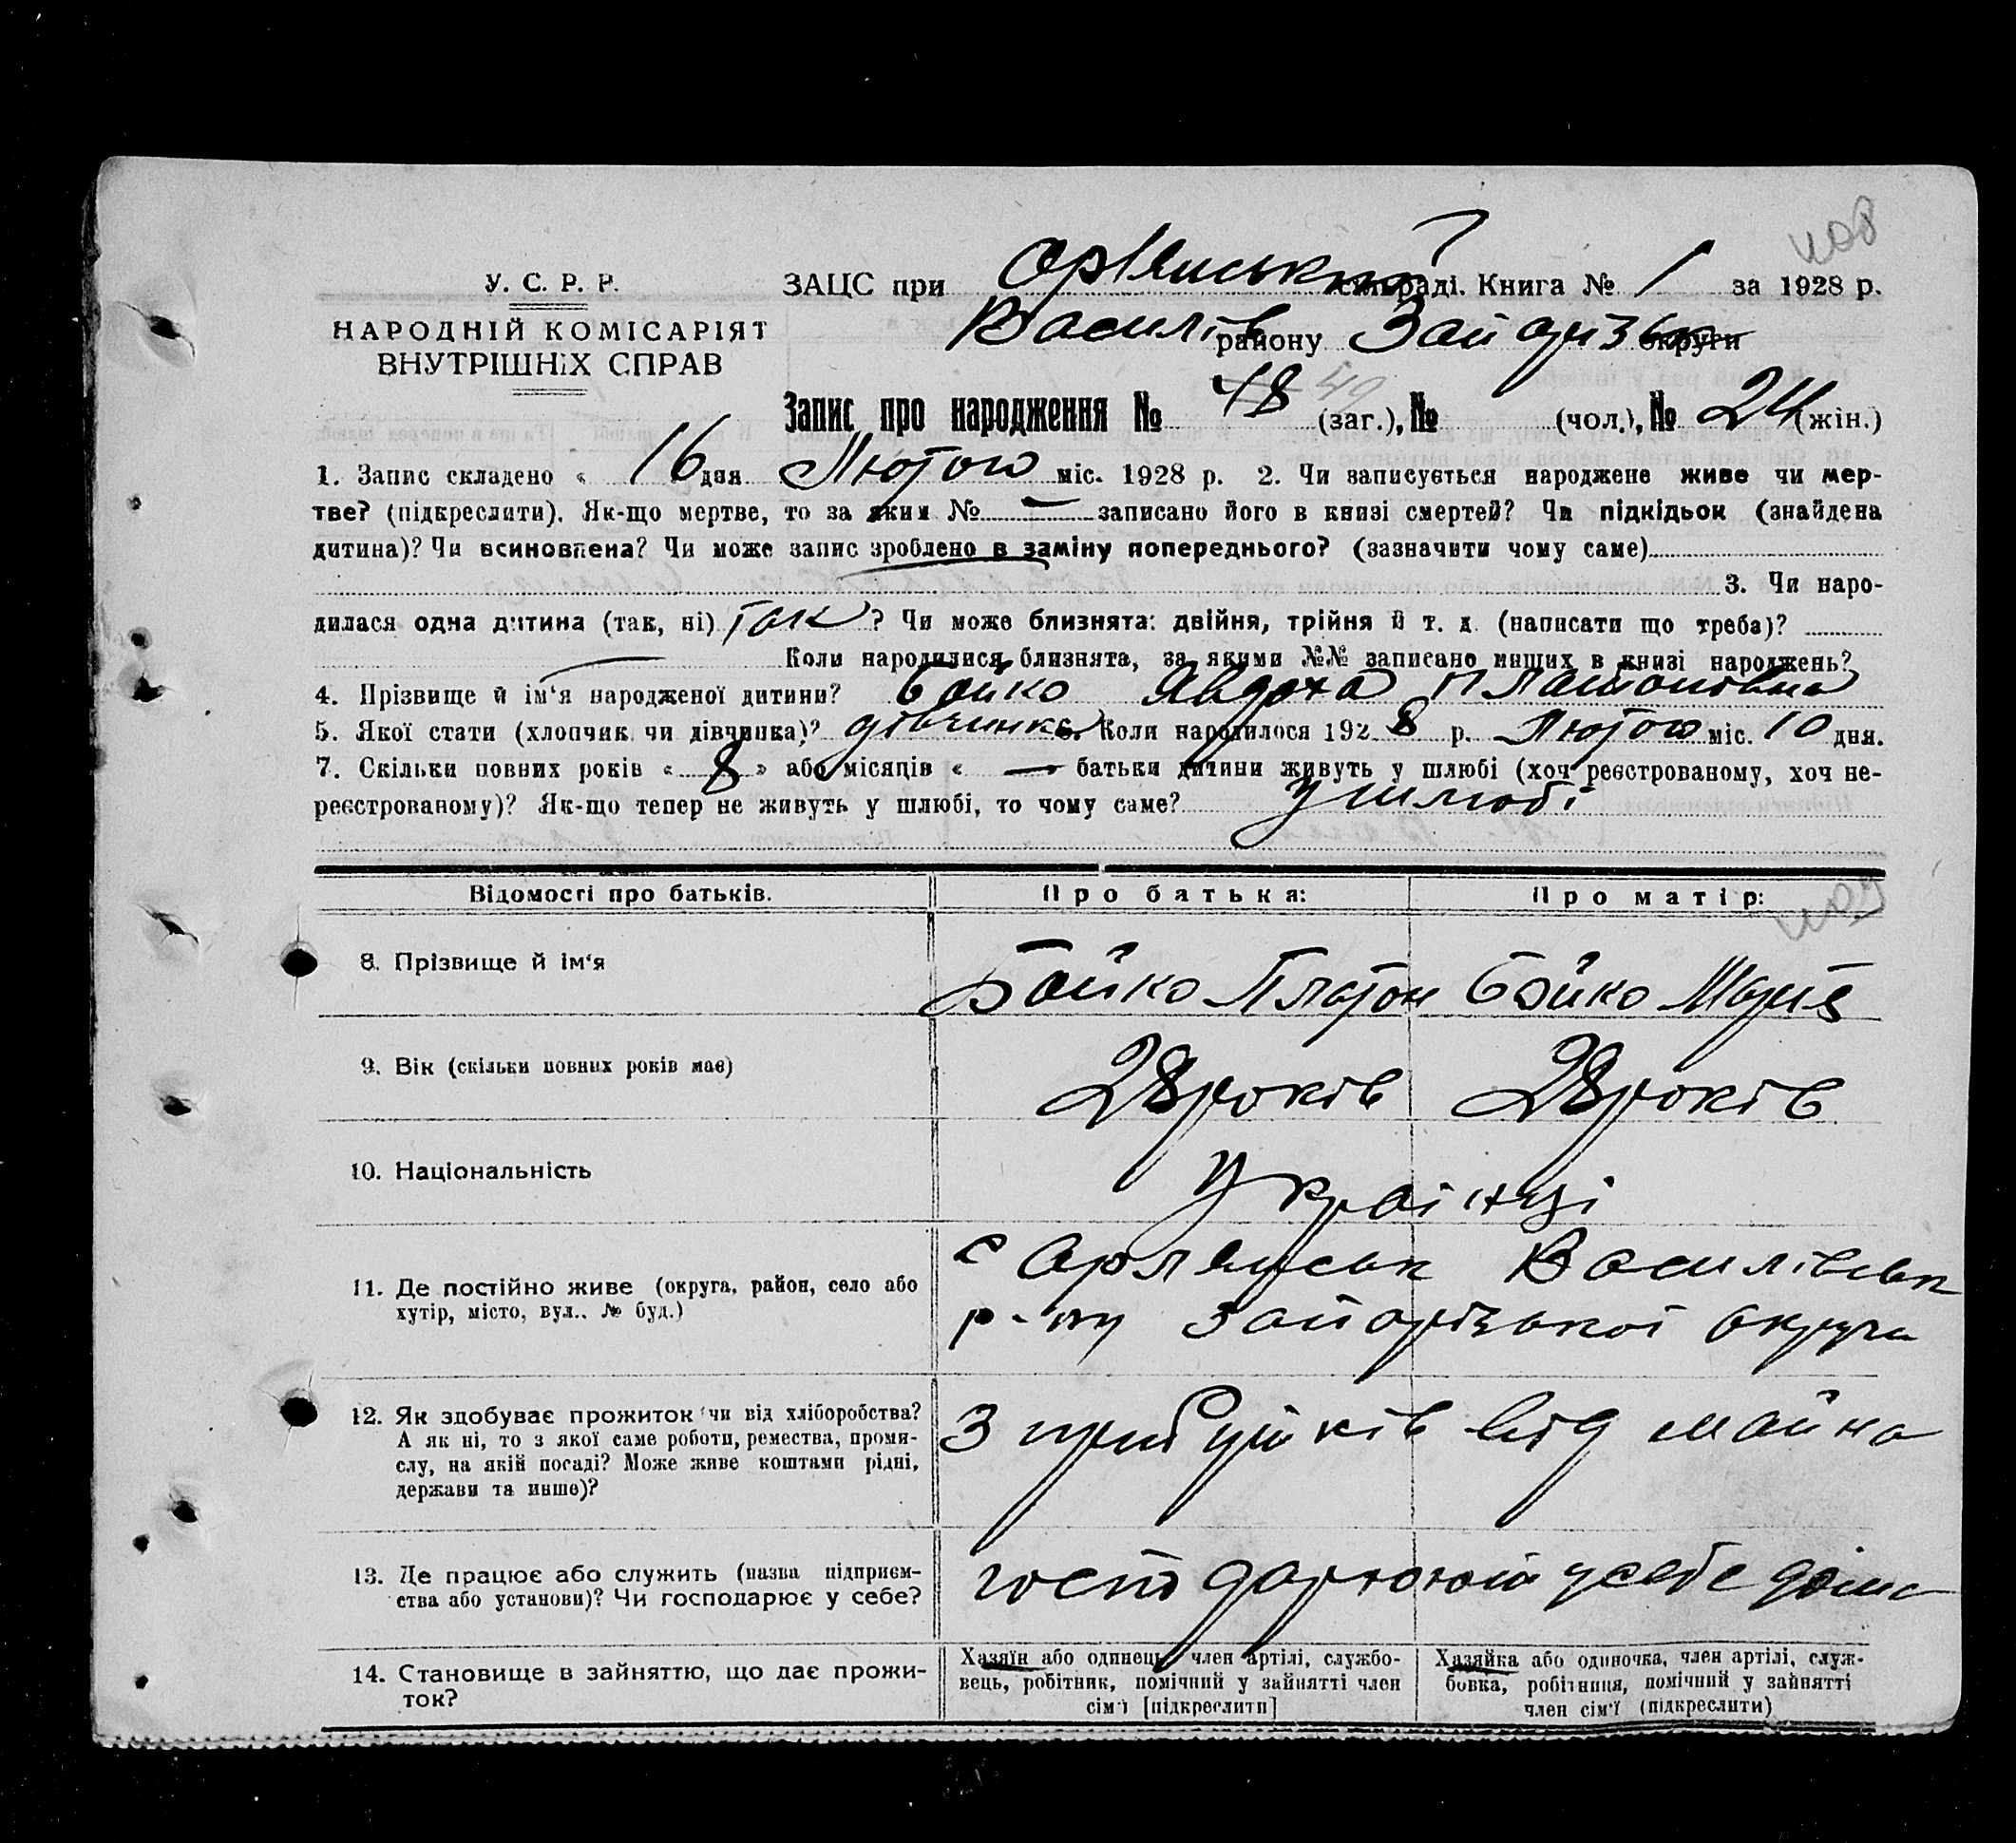 У. С. Р. Р.
НАРОДНІЙ КОМІСАРІЯТ
ВНУТРІШНІХ СПРАВ
ЗАЦС при Орлянській сільраді. Книга № 1 за 1928 р.
Василів району Запорізьк округи
Запис про народження № 48 49 (заг.), № (чол.), № 24 (жін.)
1. Запис складено « 16 дня Лютого міс. 1928 р. 2. Чи записується народжене живе чи мер-
тве? (підкреслити). Як-що мертве, то за яким № — записано його в книзі смертей? Чи підкідьок (знайдена
дитина)? Чи всиновлена? Чи може запис зроблено в заміну попереднього? (зазначити чому саме)
3. Чи наро-
дилася одна дитина (так, ні) так ? Чи може близнята: двійня, трійня й т. д. (написати що треба)?
— Коли народилися близнята, за якими №№ записано инших в книзі народжень?
4. Прізвище й ім'я народженої дитини? Бойко Явдоха Платонівна
5. Якої стати (хлопчик чи дівчинка)? дівчинка. Коли народилося 1928 р. Лютого міс. 10 дня.
7. Скільки повних років « 8 » або місяців « — батьки дитини живуть у шлюбі (хоч реєстрованому, хоч не-
реєстрованому)? Як-що тепер не живуть у шлюбі, то чому саме? у шлюбі
Відомості про батьків. Про батька: Про матір:
8. Прізвище й ім'я Бойко Платон Бойко Марія
9. Вік (скільки повних років має) 28 років 28 років
10. Національність Українці
11. Де постійно живе (округа, район, село або
хутір, місто, вул.. № буд.)
с Орлянськ Василівськ
р-ну Запорізької округи
12. Як здобуває прожиток чи від хліборобства?
А як ні, то з якої саме роботи, ремества, проми-
слу, на якій посаді? Може живе коштами рідні,
держави та инше)?
З прибутків від майна
13. Де працює або служить (назва підприєм-
ства або установи)? Чи господарює у себе?
господарюють у себе дома
14. Становище в зайняттю, що дає прожи-
ток?
Хазяїн або одинець, член артілі, службо-
вець, робітник, помічний у зайнятті член
сім'ї [підкреслити]
Хазяйка або одиночка, член артілі, служ-
бовка, робітниця, помічний у зайнятті
член сім'ї (підкреслити)